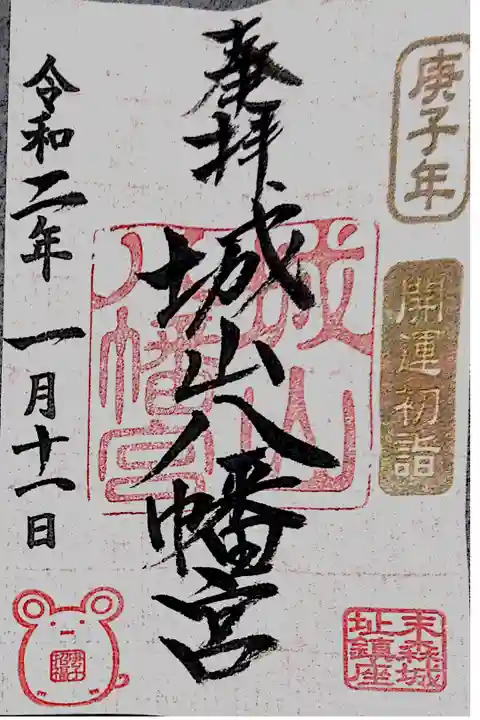 庚子年
開運初詣
奉拝
城山八幡宮
城山
八幡宮
令和二年 一月十一日
末森城
址鎮座